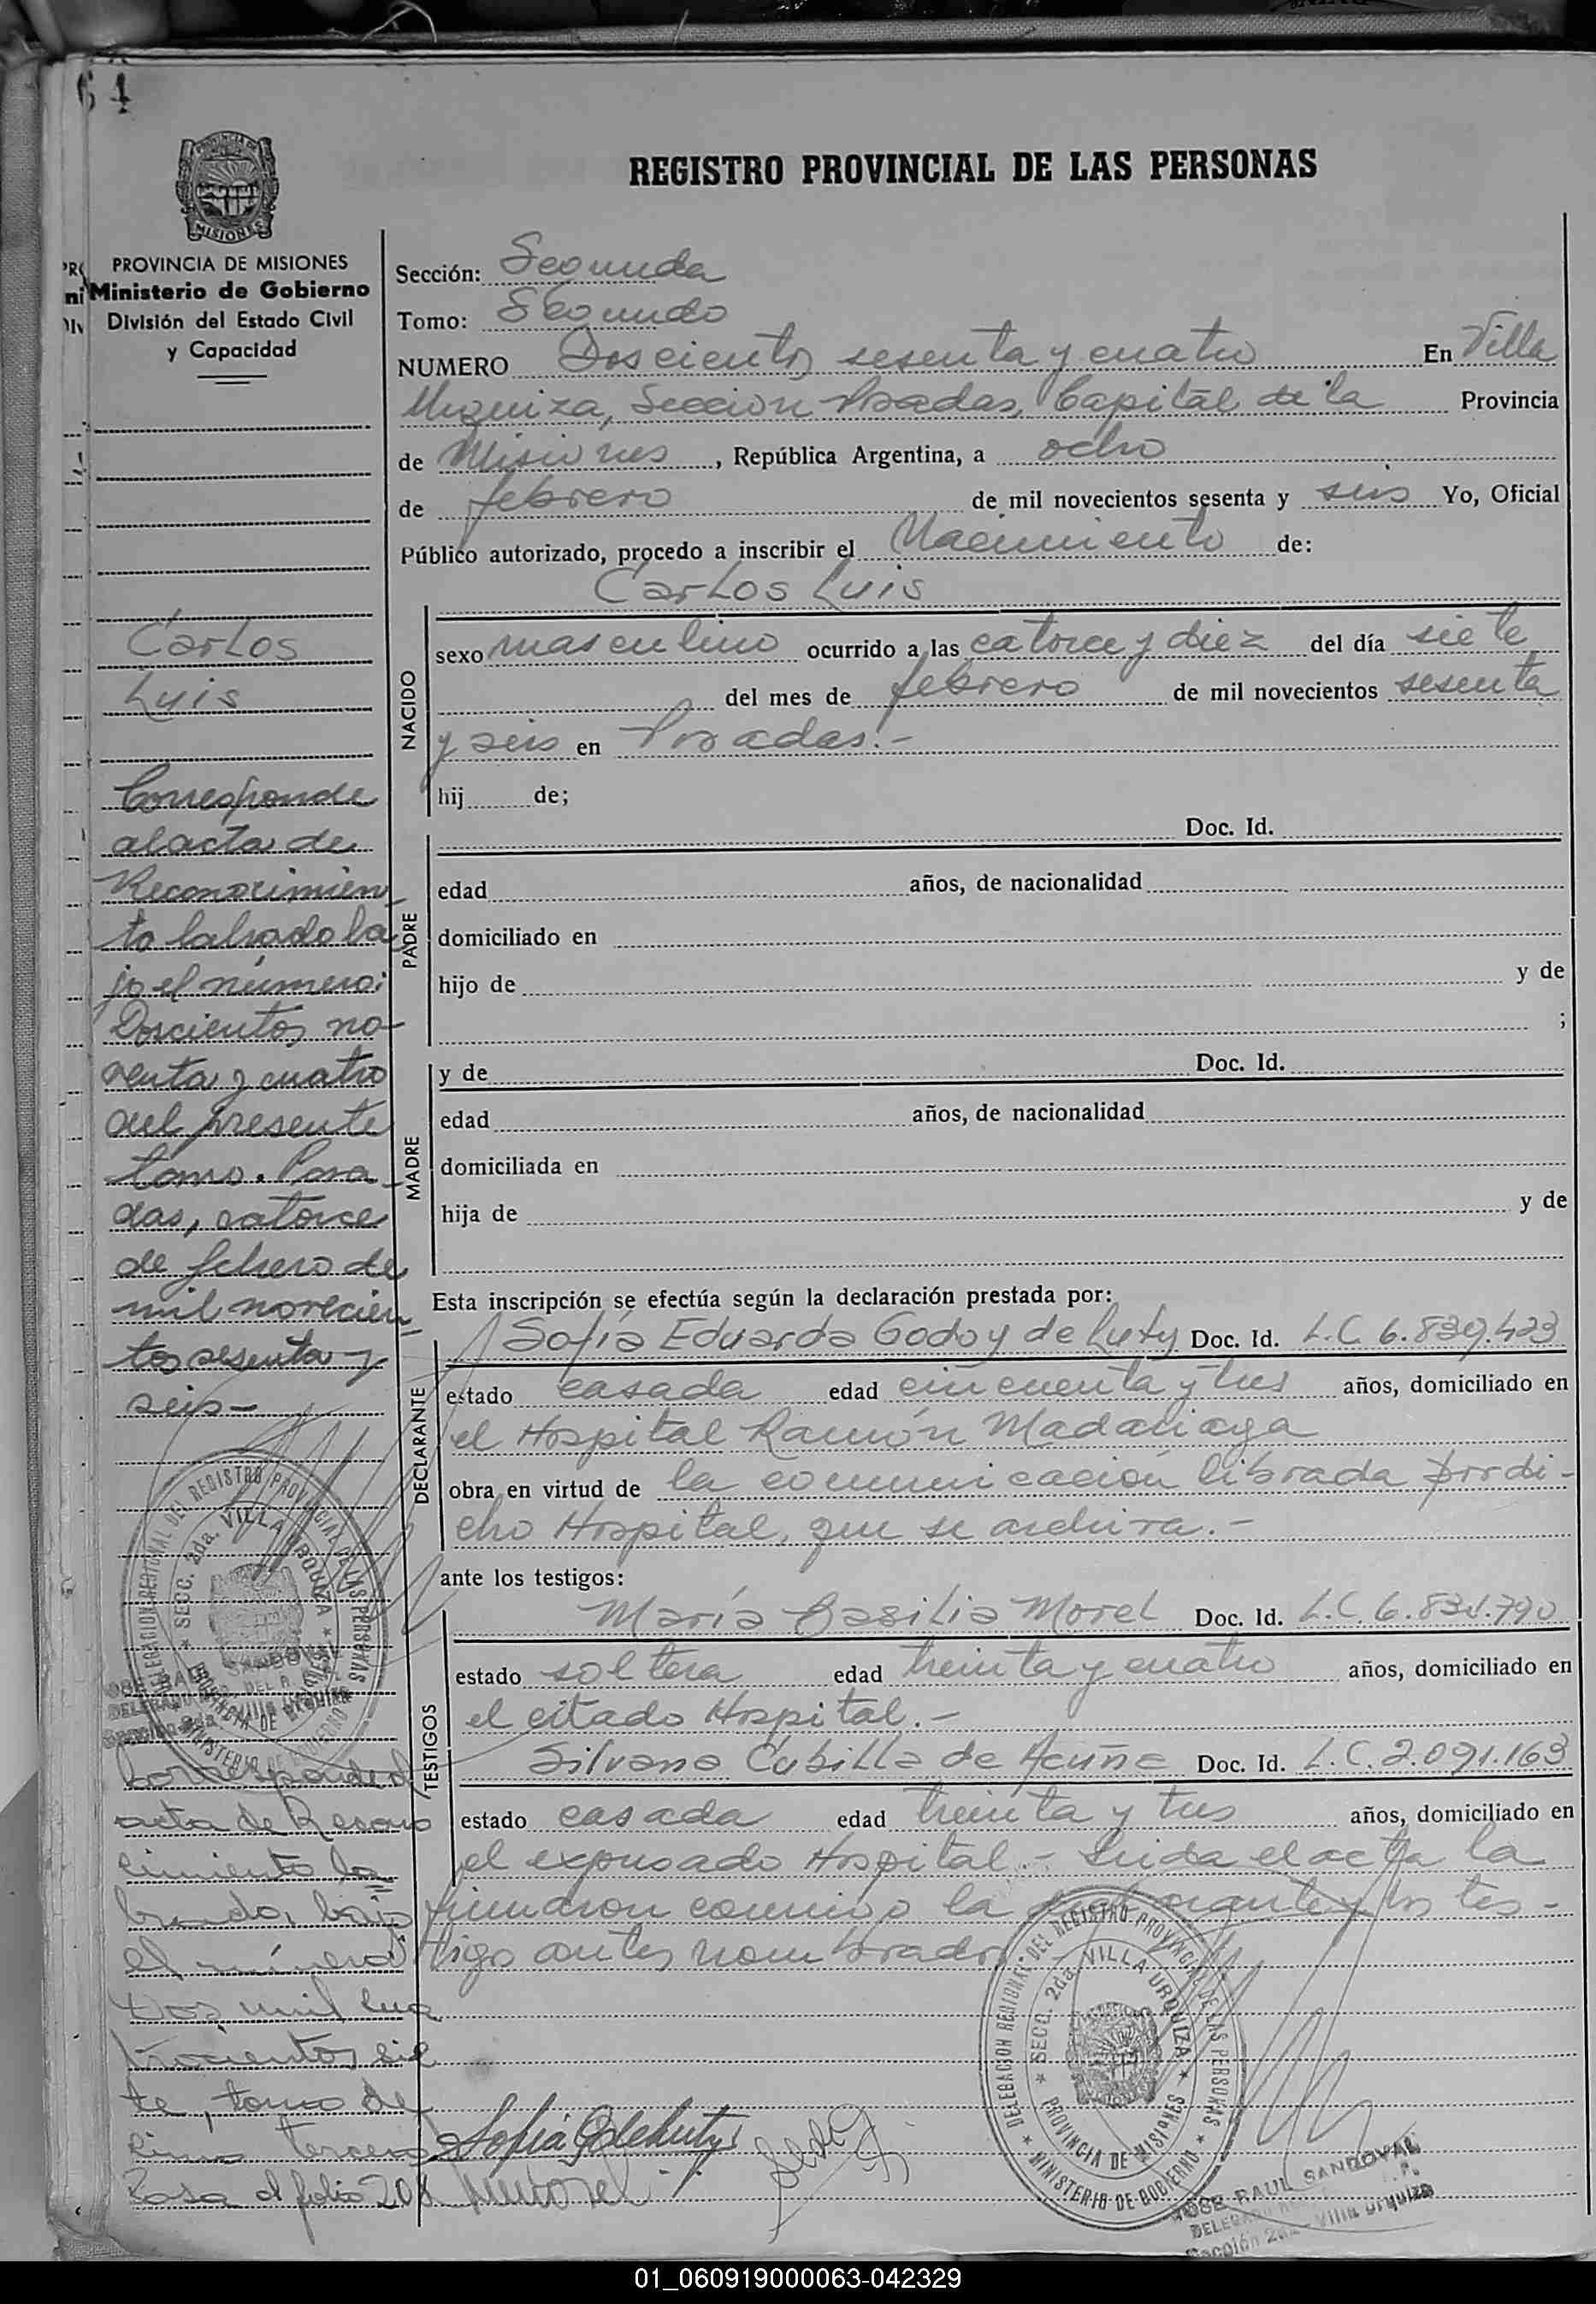 64
REGISTRO PROVINCIAL DE LAS PERSONAS
MISIONES
PROVINCIA DE MISIONES
Ministerio de Gobierno
División del Estado Civil
y Capacidad
Carlos
Luis
Corresponde
al acta de
Reconocimien
to labrado ba
jo el número:
Doscientos no
venta y cuatro
del presente
tomo. Posa
das, catorce
de febrero de
mil novecien
tos sesenta y
seis-
DELEGACION REGIONAL DEL REGISTRO PROVINCIAL DE LAS PERSONAS
SECC. 2da. VILLA URQUIZA
PROVINCIA DE MISIONES
MINISTERIO DE GOBIERNO
Corresponde al
acta de Recono
cimiento la
brada bajo
el número
Dos mil
trescientos sie
te, tomo de
cimo tercero
al folio 208
Sección: Segunda
Tomo: Segundo
NUMERO Doscientos sesenta y cuatro En Villa
Urquiza, Sección Posadas, Capital de la Provincia
de Misiones, República Argentina, a ocho
de febrero de mil novecientos sesenta y seis Yo, Oficial
Público autorizado, procedo a inscribir el Nacimiento de:
Carlos Luis
NACIDO
sexo masculino ocurrido a las catorce y diez del día siete
del mes de febrero de mil novecientos sesenta
y seis en Posadas.-
hij de;
PADRE
Doc. Id.
edad años, de nacionalidad
domiciliado en
hijo de y de
;
MADRE
y de Doc. Id.
edad años, de nacionalidad
domiciliada en
hija de y de
Esta inscripción se efectúa según la declaración prestada por:
DECLARANTE
Sofía Eduarda Godoy de Luty Doc. Id. L.C. 6.839.423
estado casada edad cincuenta y tres años, domiciliado en
el Hospital Ramón Madariaga
obra en virtud de la comunicación librada por di-
cho Hospital, que se archiva.-
ante los testigos:
TESTIGOS
María Basilia Morel Doc. Id. L.C. 6.831.790
estado soltera edad treinta y cuatro años, domiciliado en
el citado Hospital.-
Silvana Cubilla de Acuña Doc. Id. L.C. 2.091.163
estado casada edad treinta y tres años, domiciliado en
el expresado Hospital.- Leida el acta la
firmaron conmigo la declarante y los tes-
tigo antes nombrados
DELEGACION REGIONAL DEL REGISTRO PROVINCIAL DE LAS PERSONAS
SECC. 2da. VILLA URQUIZA
PROVINCIA DE MISIONES
MINISTERIO DE GOBIERNO
JOSE RAUL SANDOVAL
Sección 2da - Villa Urquiza
01_060919000063-042329